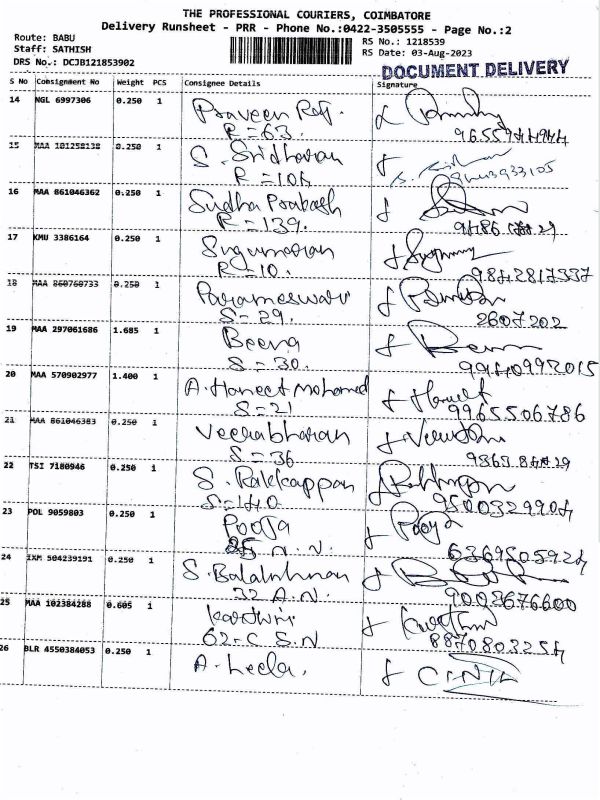 THE PROFESSIONAL COURIERS, COIMBATORE
Delivery Runsheet - PRR - Phone No.:0422-3505555 - Page No.:2
Route: BABU
Staff: SATHISH
DRS No.: DCJB121853902
RS No.: 1218539
RS Date: 03-Aug-2023
DOCUMENT DELIVERY
S No Consignment No Weight PCS Consignee Details Signature
14 NGL 6997306 0.250 1 Praveen Raj.
R = 63.
15 MAA 101258138 0.250 1 S. Sridharan
R = 104
16 MAA 861046362 0.250 1 Sudha Prakash
R = 139.
17 KMU 3386164 0.250 1 Sugumaran
R = 10. 9842817337
18 MAA 860760733 0.250 1 Parameswari
S = 29. 2607202
19 MAA 297061686 1.685 1 Beena
S = 30. 9940992015
20 MAA 570902977 1.400 1 A. Haneet Mohamed
S = 21 9965506786
21 MAA 861046383 0.250 1 Veerabharan
S = 36
22 TSI 7180946 0.250 1 S. Rakkappan
S = 140 9500329904
23 POL 9059803 0.250 1 Pooja Pooja
N.N. 6369505924
24 IXM 504239191 0.250 1 S. Balakrishnan
32 A.N. 9003676600
25 MAA 102384288 0.605 1
62-C S.N 8870803254
26 BLR 4550384053 0.250 1 A. Leela.